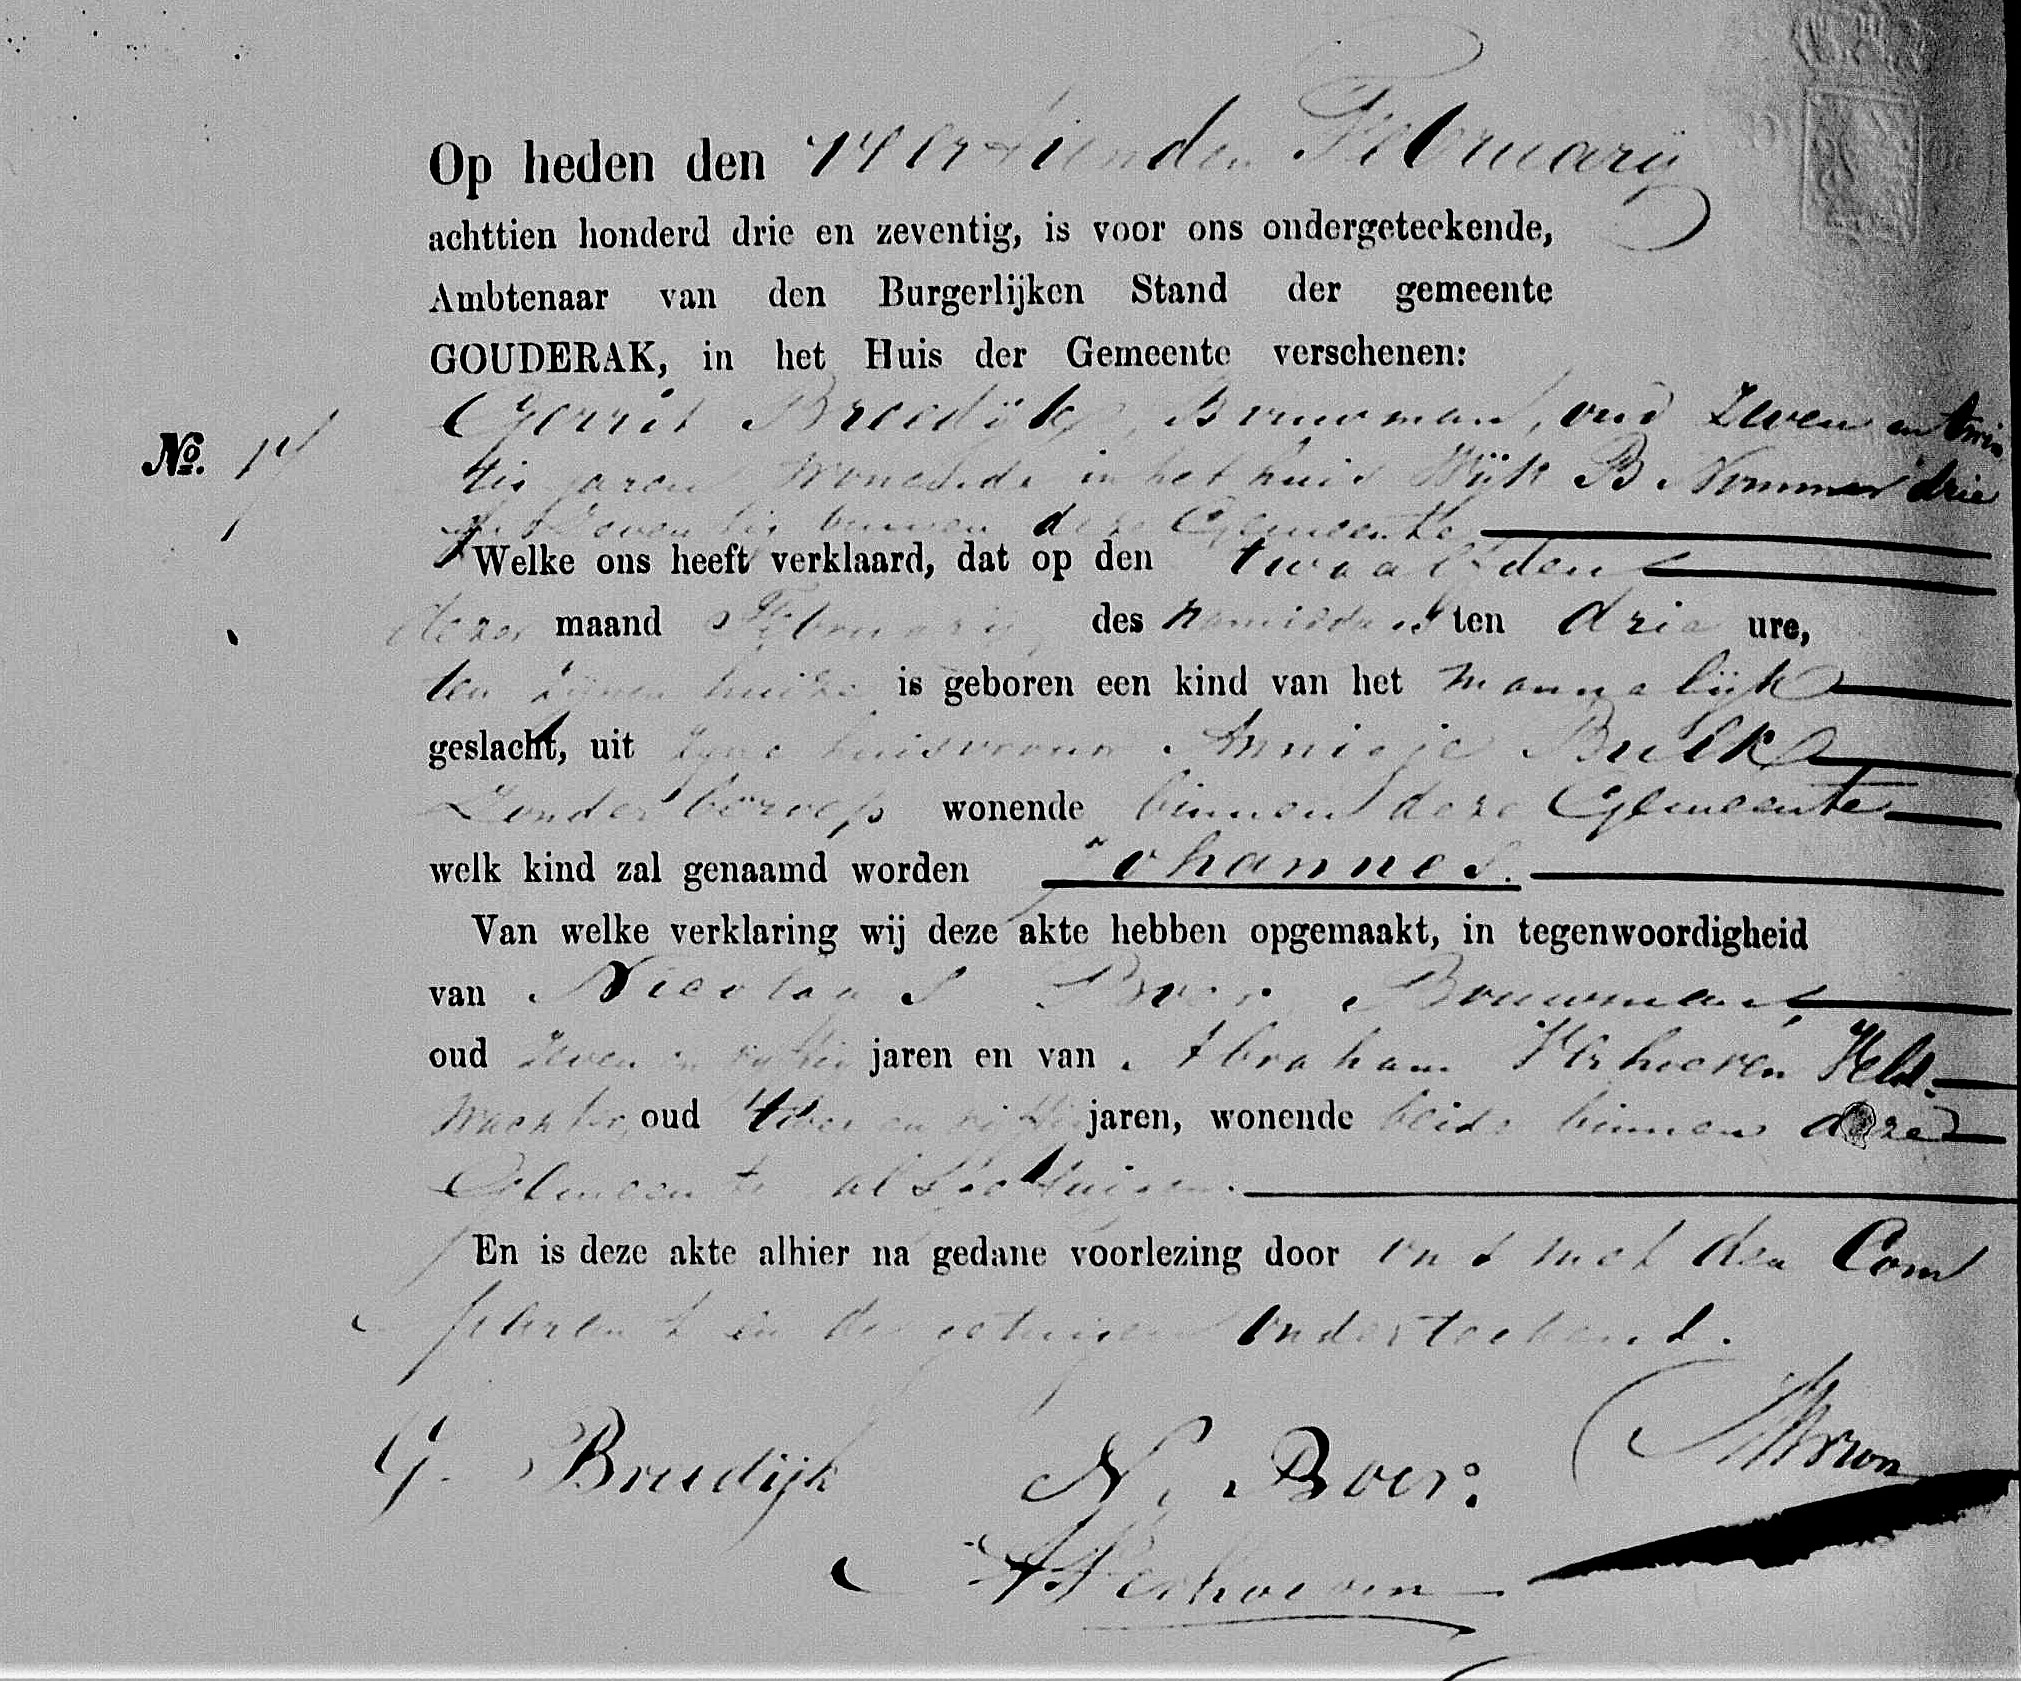 Op heden den veertienden Februarij
achttien honderd drie en zeventig, is voor ons ondergeteekende,
Ambtenaar van den Burgerlijken Stand der gemeente
GOUDERAK, in het Huis der Gemeente verschenen:
Gerrit Breedijk, Bouwman, oud Zeven en twin
No. 14
tig jaren wonende in het huis Wijk B Nommer drie
en Zeventig binnen deze Gemeente
Welke ons heeft verklaard, dat op den twaalfden
dezer maand Februarij des namiddags ten drie ure,
ten zijnen huize is geboren een kind van het mannelijk
geslacht, uit zijne huisvrouw Annigje Bulk
Zonder beroep wonende binnen deze Gemeente
welk kind zal genaamd worden Johannes.
Van welke verklaring wij deze akte hebben opgemaakt, in tegenwoordigheid
van Nicolaas Boer, Bouwman,
oud Zeven en vijftig jaren en van Abraham Verhoeven Veld-
wachter, oud en vijftig jaren, wonende beide binnen deze
Gemeente als getuigen.
En is deze akte alhier na gedane voorlezing door ons met den Com
parant en de getuigen onderteekend.
G. Breedijk N. Boer.
A Verhoeven